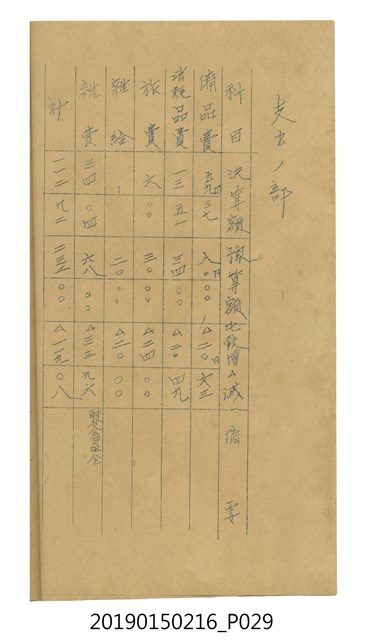 支出ノ部
科目 決算額 豫算額 比較増△減 摘要
備品費 五九円三七 八〇円〇〇 △二〇円六三
消耗品費 一三五一 三四〇〇 △二〇四九
旅費 六〇〇 三〇〇〇 △二四〇〇
雑給 二〇〇〇 △二〇〇〇
雑費 三四〇四 六八〇〇 △三三九六
計 一一二九二 二三二〇〇 △一一九〇八
20190150216_P029